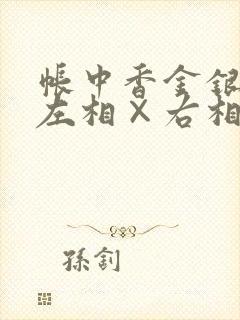 帳中香金銀
左相×右相
孫釗